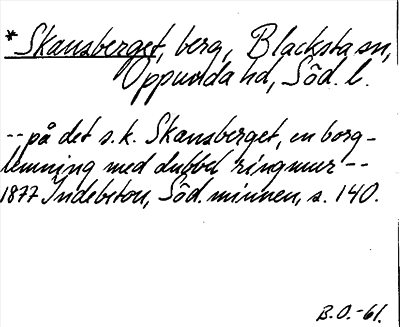 * Skansberget, berg, Blacksta sn,
Oppunda hd, Söd. l.
-- på det s.k. Skansberget, en borg-
lemning med dubbel ringmur --
1877 Indebetou, Söd. minnen, s. 140.
B.O.-61.